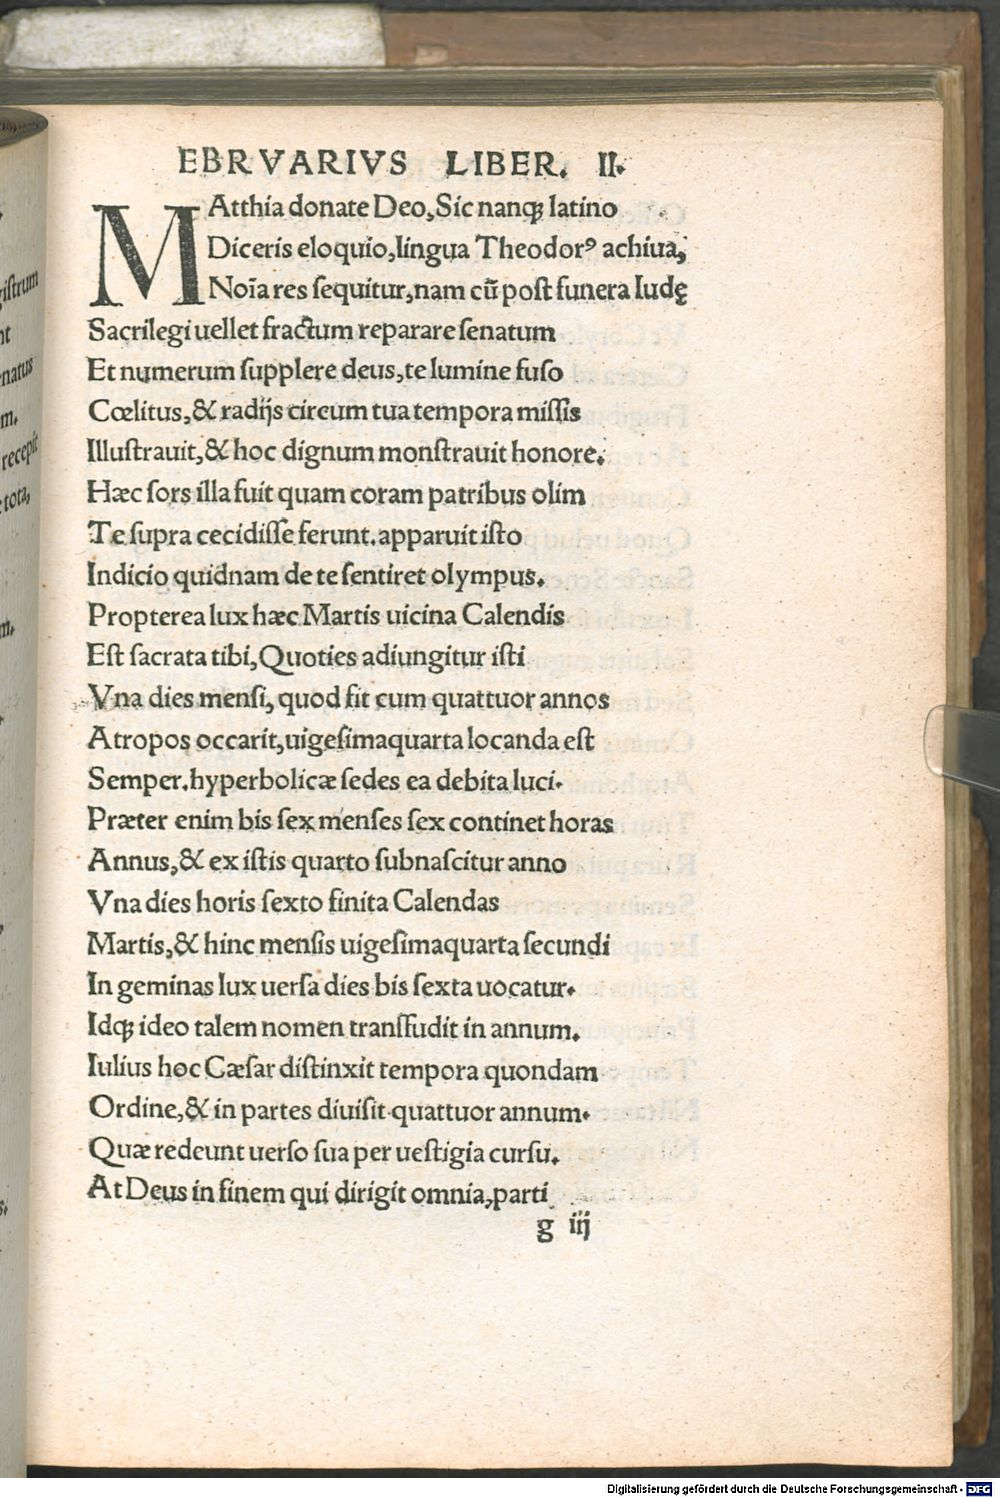 EBRVARIVS LIBER. II.
MAtthia donate Deo, Sic nanq; latino
Diceris eloquio, lingua Theodorꝰ achiua,
Noīa res sequitur, nam cū post funera Iudę
Sacrilegi uellet fractum reparare senatum
Et numerum supplere deus, te lumine fuso
Cœlitus, & radijs circum tua tempora missis
Illustrauit, & hoc dignum monstrauit honore.
Hæc sors illa fuit quam coram patribus olim
Te supra cecidisse ferunt. apparuit isto
Indicio quidnam de te sentiret olympus.
Propterea lux hæc Martis uicina Calendis
Est sacrata tibi, Quoties adiungitur isti
Vna dies mensi, quod fit cum quattuor annos
Atropos occarit, uigesimaquarta locanda est
Semper. hyperbolicæ sedes ea debita luci.
Præter enim bis sex menses sex continet horas
Annus, & ex istis quarto subnascitur anno
Vna dies horis sexto finita Calendas
Martis, & hinc mensis uigesimaquarta secundi
In geminas lux uersa dies bis sexta uocatur.
Idq; ideo talem nomen transfudit in annum.
Iulius hoc Cæsar distinxit tempora quondam
Ordine, & in partes diuisit quattuor annum.
Quæ redeunt uerso sua per uestigia cursu.
At Deus in finem qui dirigit omnia, parti
g iij
gistrum
nt
natus
m.
recepit
tota,
m.
Digitalisierung gefördert durch die Deutsche Forschungsgemeinschaft - DFG